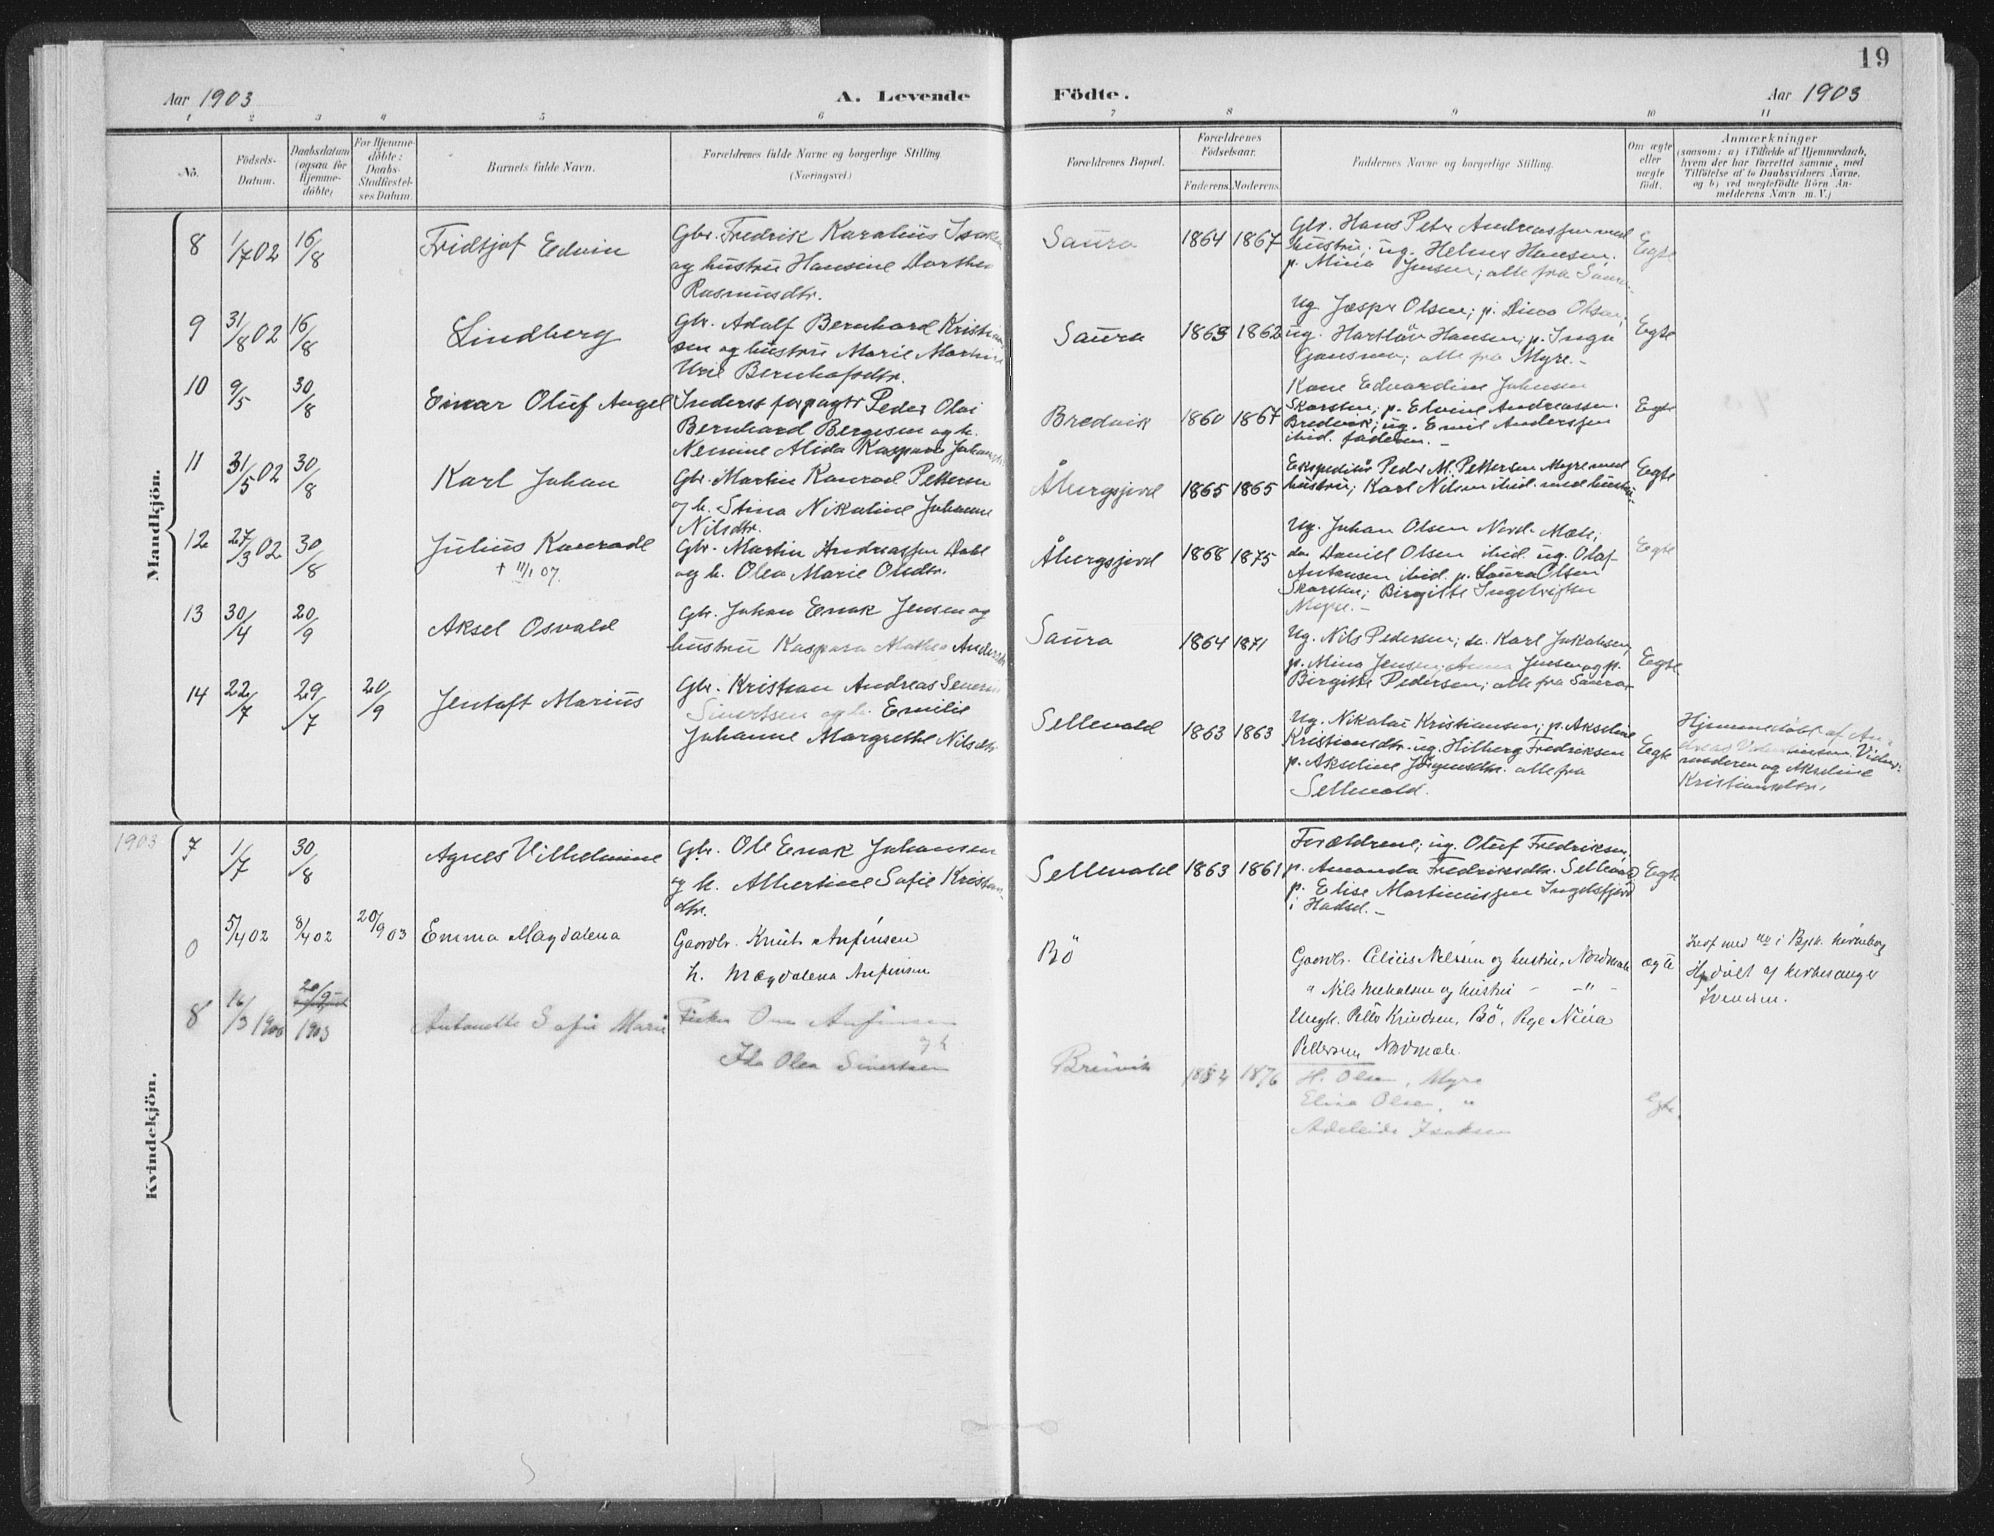 19
Aar 1903
A. Levende
Födte.
Aar 1903
1 2 3 4 5 6 7 8 9 10 11
No.
Födsels-
Datum.
Daabsdatum
(ogsaa for
Hjemme-
döbte)
For Hjemme-
döbte:
Daabs-
Stadfæstel-
ses Datum
Barnets fulde Navn.
Forældrenes fulde Navne og borgerlige Stilling.
(Næringsvei)
Forældrenes Bopæl.
Forældrenes
Födselsaar.
Faderens. Moderens.
Faddernes Navne og borgerlige Stilling.
Om ægte
eller
uægte
födt.
Anmærkninger
(saasom: a) i Tilfælde af Hjemmedaab,
hvem der har forrettet samme, med
Tilföielse af to Daabsvidners Navne,
og b) ved uegtefödte Börn An-
melderens Navn m. V.)
Mandkjön.
8 1/7 02 16/8 Fridtjof Edvin
Gbr. Fredrik Karolius Isaksen
og hustru Hansine Dorthea
Rasmusdtr.
Saura 1864 1867
Gbr. Hans Peter Andreassen med
hustru; ug. Helmer Hansen;
p. Mina Jensen; alle fra Saura.
Egte
9 31/8 02 16/8 Lindberg
Gbr. Adolf Bernhard Kristian
sen og hustru Marie Martine
Urie Bernhofsdtr.
Saura 1863 1862
Ug. Jesper Olsen; p. Dina Olsen;
ug. Hartlöv Hansen; p. Inga
alle fra Myre.
Egte
10 9/5 30/8 Einar Oluf Angel
Inderst forpagtr Peder Olai
Bernhard Bergesen og h.
Nemine Alida Kaspara Johansdtr
Bredvik 1860 1867
Kone Edvardine Johnsen
Skarsten; p. Elvine Andreassen
Bredvik; ug. Emil Anderssen
ibid. faderen. —
Egte
11 31/5 02 30/8 Karl Johan
Gbr. Martin Konrad Pettersen
og h. Stina Nikoline Johanne
Nilsdtr.
Åbergsjord 1865 1865
Ekspeditör Peder M. Pettersen Myre med
hustru; Karl Nilsen ibid. med hustru.
Egte
12 27/3 02 30/8 Julius Konrad
† 11/1 07.
Gbr. Martin Andreassen Dahl
og h. Olea Marie Olsdtr.
Åbergsjord 1868 1875
Ug. Johan Olsen Nord-Mæle;
do Daniel Olsen ibid. ug. Olaf
Antonsen ibid. p. Laura Olsen
Skarsten; Birgitte
Myre. —
Egte
13 30/4 20/9 Aksel Osvald
Gbr. Johan Enok Jensen og
hustru Kaspara Mathea Andersdtr
Saura 1864 1871
Ug. Nils Pedersen; do. Karl Jakobsen
p. Mina Jensen; Anna Jensen og p.
Birgitte Pedersen; alle fra Saura
Egte
14 22/7 29/7 20/9 Jentoft Marius
Gbr. Kristian Andreas Severin
Sivertsen og h. Emilie
Johanne Margrethe Nilsdtr
Sellevold 1863 1863
Ug. Nikolai Kristiansen; p. Akseline
Kristiansdtr. ug. Hilberg Fredriksen
p. Akseline Jörgensdtr. alle fra
Sellevold.
Egte
Hjemmedöbt af An-
moderen og Akseline
Kristiansdtr.
Kvindekjön.
1903
7 1/7 30/8 Agnes Vilhelmine
Gbr. Ole Enok Johansen
og h. Albertine Sofie Kristian
dtr.
Sellevold 1863 1861
Forældrene; ug. Oluf Fredriksen,
p. Amanda Fredriksdtr. Sellevold
p. Elise Martinussen Ingelsfjord
i Hadsel. —
Egte
0 5/4 02 8/4 02 20/9 03 Emma Magdalena
Gaardbr. Knut Anfinsen
h. Magdalena Anfinsen
Bö
Gaardbr. Nelssen og hustru, Nordmæle
" Nils Mekalsen og hustru - " -
Ungk. Petter Knudsen, Bö, Pige Nina
Pettersen Nordmæle.
ægte
Hjdöbt af kirkesanger
Svendsen.
8 16/3 1903 20/9 1903 Antonette Sofie Marie
Fisker Ole Anfinsen
og h
Ida Olea Sivertsen
Breivik 1884 1876
H. Olsen, Myre
Elina Olsen, "
Adeleide Isaksen
Egte.